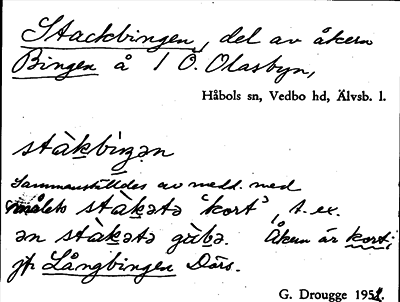 Stackbingen, del av åkern
Bingen å 1 Ö. Olasbyn,
Håbols sn, Vedbo hd, Älvsb. l.
stàkbiŋən
Sammanställdes av medd. med
målets stàkətə 'kort', t. ex.
ən stàkətə gùbə. Åkern är kort;
jfr Långbingen Därs.
G. Drougge 1951.